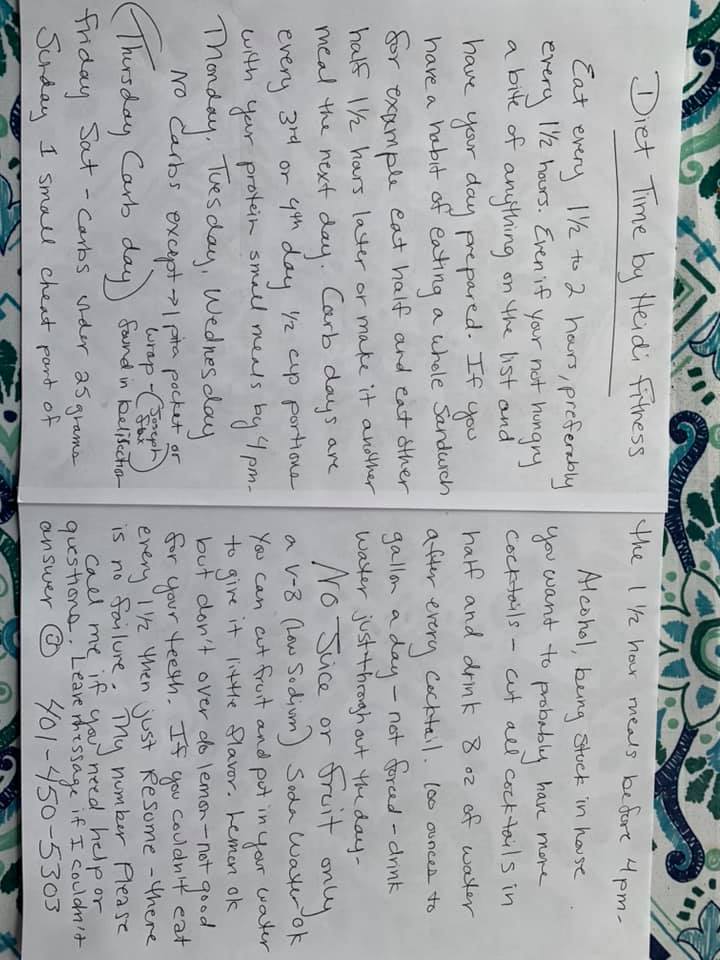 Diet Time by Heidi Fitness
Eat every 1½ to 2 hours, preferably
every 1½ hours. Even if your not hungry
a bite of anything on the list and
have your day prepared. If you
have a habit of eating a whole Sandwich
for example eat half and eat other
half 1½ hours later or make it another
meal the next day. Carb days are
every 3rd or 4th day ½ cup portions
with your protein small meals by 4pm.
Monday, Tuesday, Wednesday
No Carbs except → 1 pita pocket or
wrap - (Joseph flax)
(Thursday Carb day) found in deli section
Friday Sat - Carbs under 25 grams
Sunday 1 small cheat part of
the 1½ hour meals before 4pm -
Alcohol, being stuck in house
you want to probably have more
cocktails - cut all cocktails in
half and drink 8 oz of water
after every cocktail. 100 ounces to
gallon a day - not forced - drink
water just throughout the day -
No Juice or fruit only
a V-8 (low Sodium) Soda Water ok
You can cut fruit and put in your water
to give it little flavor. Lemon ok
but don't over do lemon - not good
for your teeth. If you couldn't eat
every 1½ then just Resume - there
is no failure. My number Please
Call me if you need help or
questions. Leave message if I couldn't
answer @ 401-450-5303